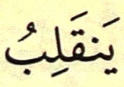 يَنقَلِبُ